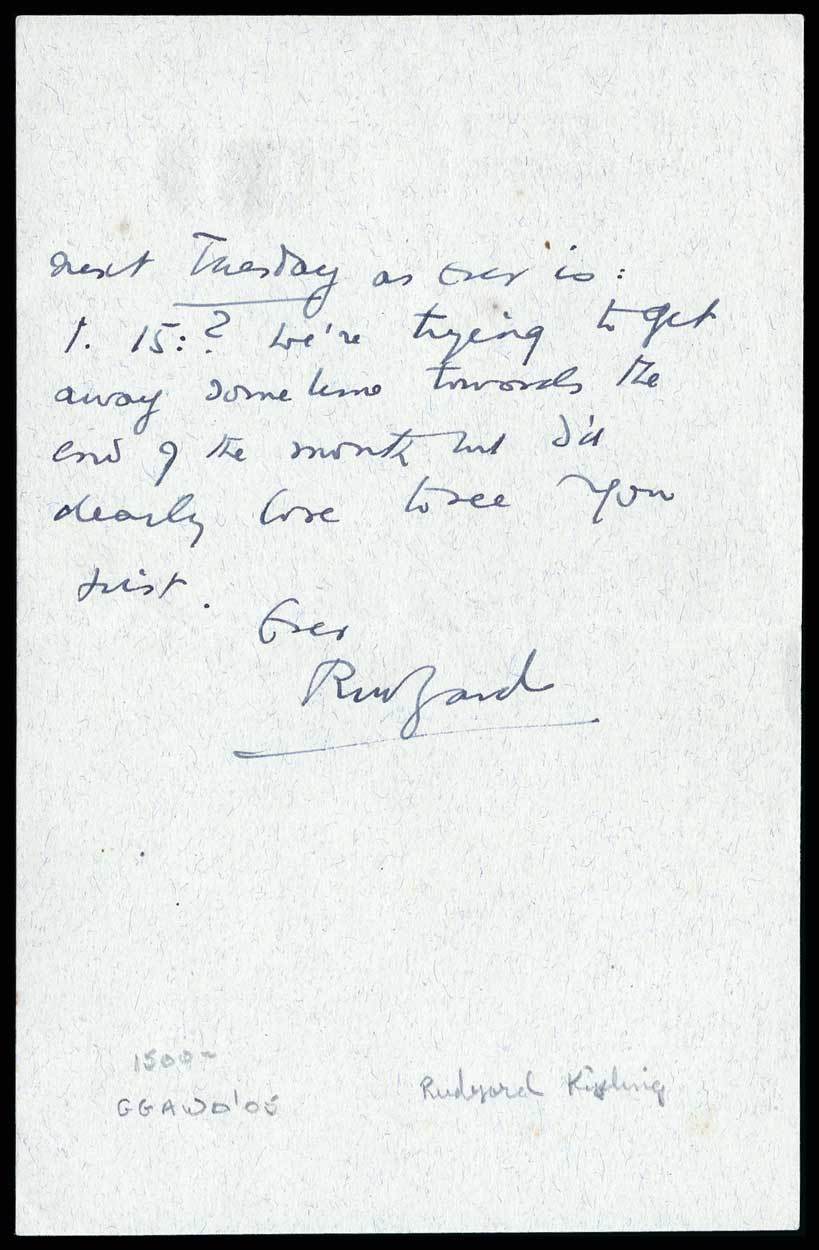 next Tuesday as ever is:
1. 15:? We're trying to get
away sometime towards the
end of the month but I'd
dearly love to see You
first.
Ever
Rudyard
1500-
GGAWD'05
Rudyard Kipling